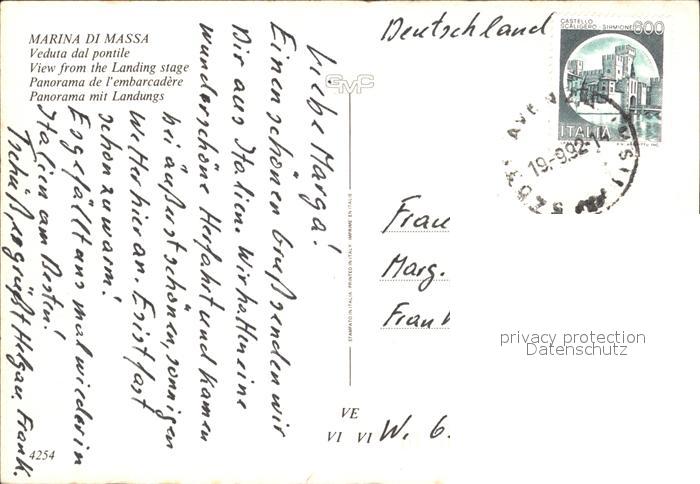 MARINA DI MASSA
Veduta dal pontile
View from the Landing stage
Panorama de l'embarcadère
Panorama mit Landungs
Liebe Marga!
Einen schönen Gruß senden wir
Dir aus Italien. Wir hatten eine
wunderschöne Herfahrt und kamen
bei äußerst schönen, sonnigen
Wetter hier an. Es ist fast
schon zu warm!
Es gefällt uns mal wieder in
Italien am Besten!
Tschüß, so grüßt Helga u. Frank.
4254
GMC
STAMPATO IN ITALIA PRINTED IN ITALY IMPRIME EN ITALIE
VE
VI VI
Deutschland
CASTELLO
SCALIGERO - SIRMIONE
600
ITALIA
19-9.92-1
Frau
Marg.
W. 6.
privacy protection
Datenschutz